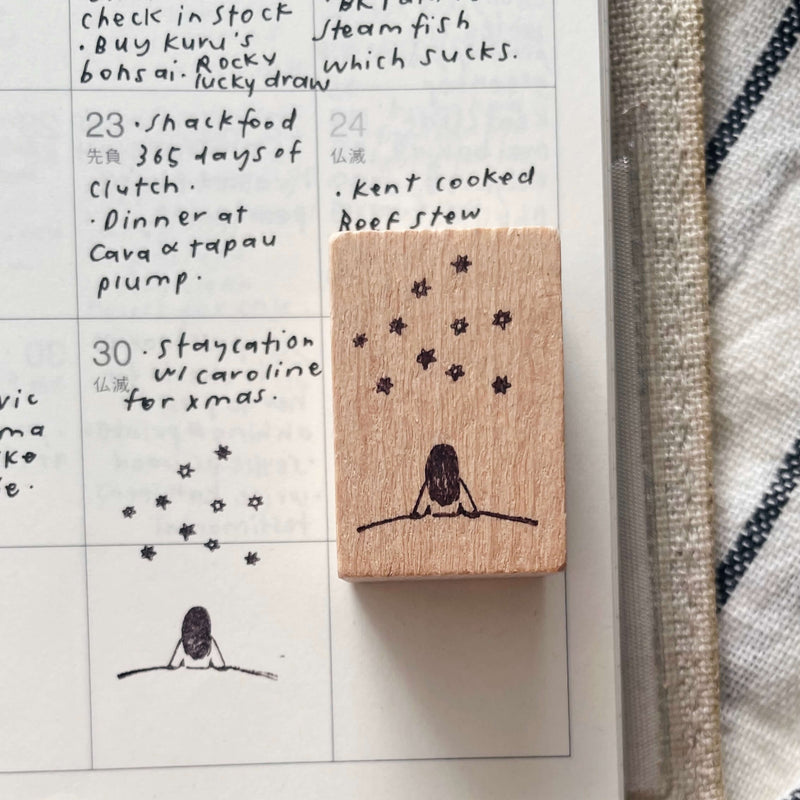 check in stock
· Buy Kuru's
bonsai. Rocky
lucky draw
steam fish
which sucks.
23 · shackfood
先負 365 days of
clutch.
· Dinner at
Cava & tapau
plump.
24
仏滅
· Kent cooked
Beef stew
30 · staycation
仏滅 w/ caroline
for xmas.